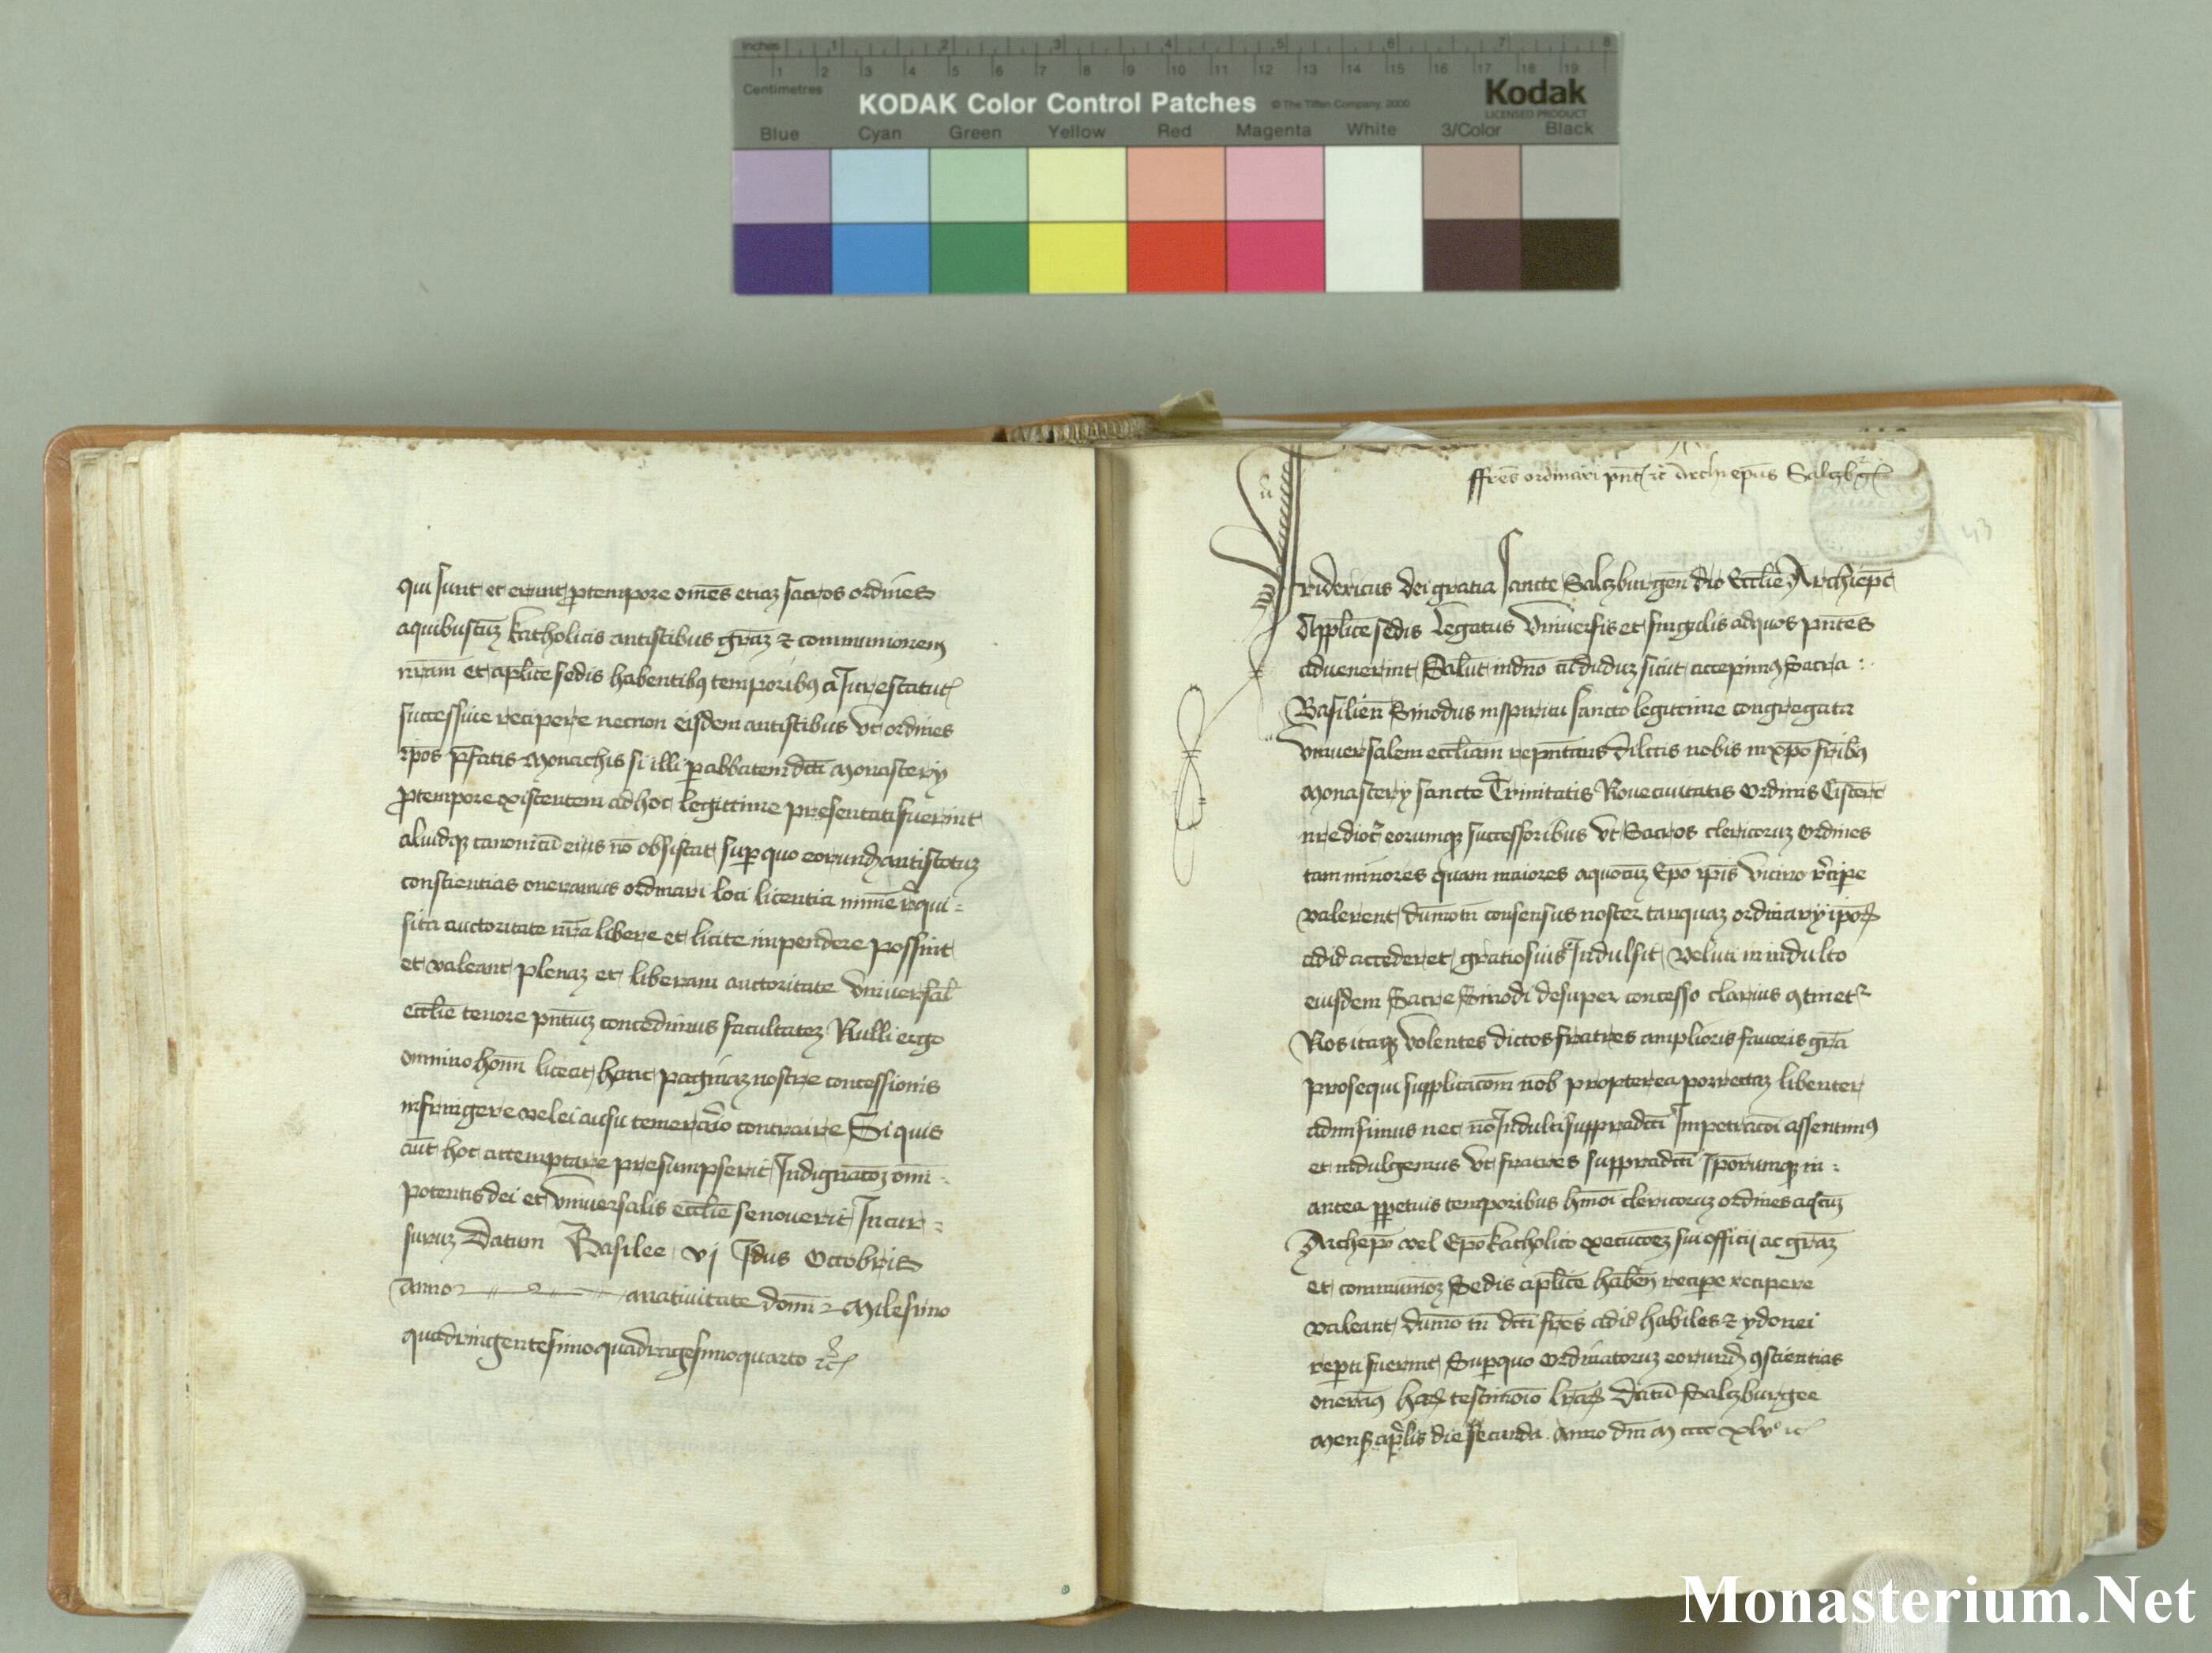 Inches 1 2 3 4 5 6 7 8
1 2 3 4 5 6 7 8 9 10 11 12 13 14 15 16 17 18 19
Centimetres
KODAK Color Control Patches © The Tiffen Company, 2000 Kodak
LICENSED PRODUCT
Blue Cyan Green Yellow Red Magenta White 3/Color Black
qui sunt et erunt ꝓtempore om̄es etiaz sacros ordines
aquibuscūz katholicis antistibus gr̄az ⁊ communionem
nr̄am et aplice sedis habentibꝫ temporibꝫ a Jure statut
successiue recipere necnon eisdem antistibus vt ordines
ip̄os p̄fatis Monachis si illi ꝑ abbatem dc̄ti Monastery
ꝓtempore existentem ad hoc legittime presentati fuerint
aliudqꝫ canonicū eius nō obsistat suꝑ quo eorundꝫ antistotuz
conscientias oneramus ordinari loci licentia minīe req̄ui=
sita auctoritate nr̄a libere et licite impendere possint
et valeant plenaz et liberam auctoritate vniuersal̄
eccl̄ie tenore pn̄tiuz concedimus facultatez Nulli ergo
omnino hoīm liceat hanc paginaz nostre concessionis
infringere vel ei ausu temerario contraire Si quis
aut̄ hoc attemptare presumpserit Indignac̄oz om̄i=
potentis dei et vniuersalis eccl̄ie se nouerit Incur=
suruz Datum Basilee vj Jdus Octobris
Anno a natiuitate domī Milesimo
quadringentesimoquadragesimoquarto ꝛc̄
ffres ordinari pn̄t ꝛc Archiepūs Salczbꝫ
43
Fridericus dei gratia sancte Salczburgen̄ Eccl̄ie Archiepc̄
Applice sedis legatus Vniuersis et singulis adquos pn̄tes
aduenerint Salut̄ in dn̄o cū duduz sicut accepimꝫ Sacra:
Basilien̄ Sinodus in spiritu sancto legittime congregata
vniuersalem eccl̄iam repn̄tans dilctis nobis in xp̄o fr̄ibꝫ
Monastery sancte Trinitatis Noue ciuitatis Ordinis Cisterc̄
nre dioc̄ eorumqꝫ successoribus vt Sacros clericoruz ordines
tam minores quam maiores aquocūz Epo ip̄is vicino r̄cipe
valerent dūmodo tn̄ consensus noster tanquaz ordinary ip̄oꝝ
ad id accederet gratiosius Indulsit veluti in indulto
eiusdem Sacre Sinodi desuper concesso clarius ꝯtinetꝛ
Nos itaqꝫ volentes dictos fratres amplioris fauoris gr̄a
prosequi supplicacōm nob̄ propterea porrectaz libenter
admisimus nec nō Indulti suppradc̄ti Impetracōi assentimꝫ
et indulgemus vt fratres suppradc̄ti Ip̄orumqꝫ in:
antea ꝑpetuis temporibus hm̄oi clericoruz ordines aqcūz
Archiep̄o vel Epo katholico execucōez sui officij ac gr̄az
et communōz Sedis ap̄lice haben̄ recipe recipere
valeant dūmo tn̄ dc̄ti fr̄es ad id habiles ⁊ ydonei
reperti fuerint Suꝑ quo ordinatoruz eorundꝫ ꝯscientias
oneramꝫ haꝝ testimōio lr̄aꝝ Datū Salczburgee
Mensꝭ ap̄lis die secunda Anno dn̄i M cccc xlvᵒ ꝛc
Monasterium.Net